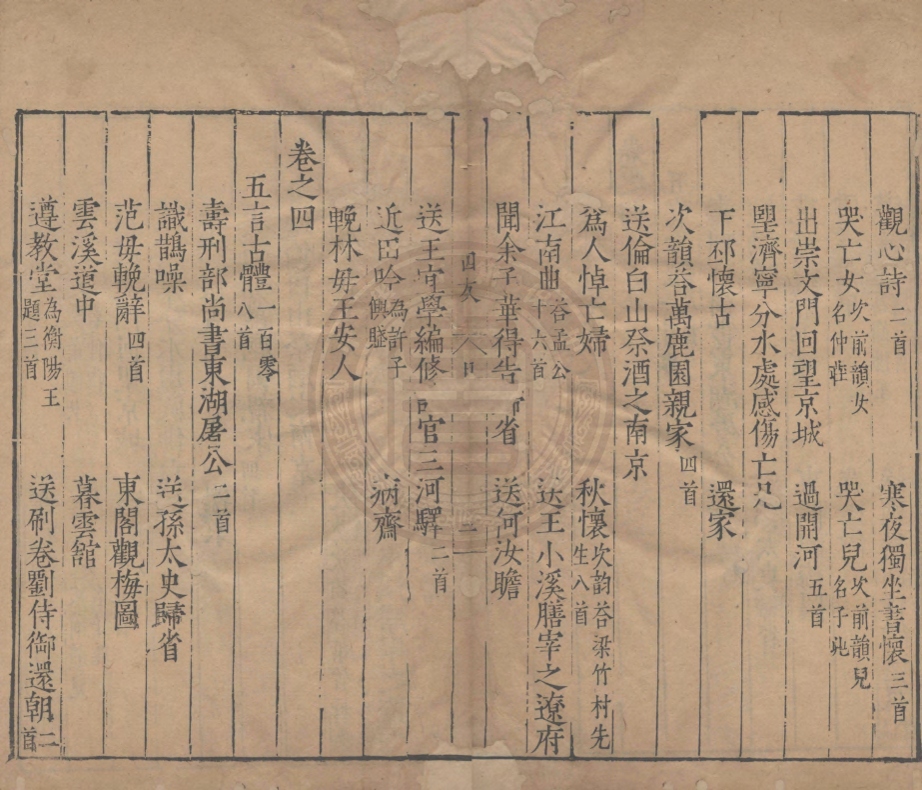 觀心詩二首 寒夜獨坐書懷三首
哭亡女次前韻女名仲莊 哭亡兒次前韻兒名子
出崇文門回望京城 過開河五首
壄濟寧分水處感傷亡兄
下邳懷古 還家
次韻荅萬鹿園親家四首
送倫白山祭酒之南京
爲人悼亡婦 秋懷次韵荅梁竹村先生八首
江南曲荅孟公十六首 送王小溪膳宰之遼府
聞余子華得告省 送何汝瞻
目 二
送王官學編修官三河驛二首
近臣吟為許子賦 病齋
輓林母王安人
卷之四
五言古體一百零八首
壽刑部尚書東湖屠公二首
識鵲噪 送孫太史歸省
范母輓辭四首 東閣觀梅圖
雲溪道中 暮雲舘
遵教堂為衡陽王題三首 送刷卷劉侍御還朝二首